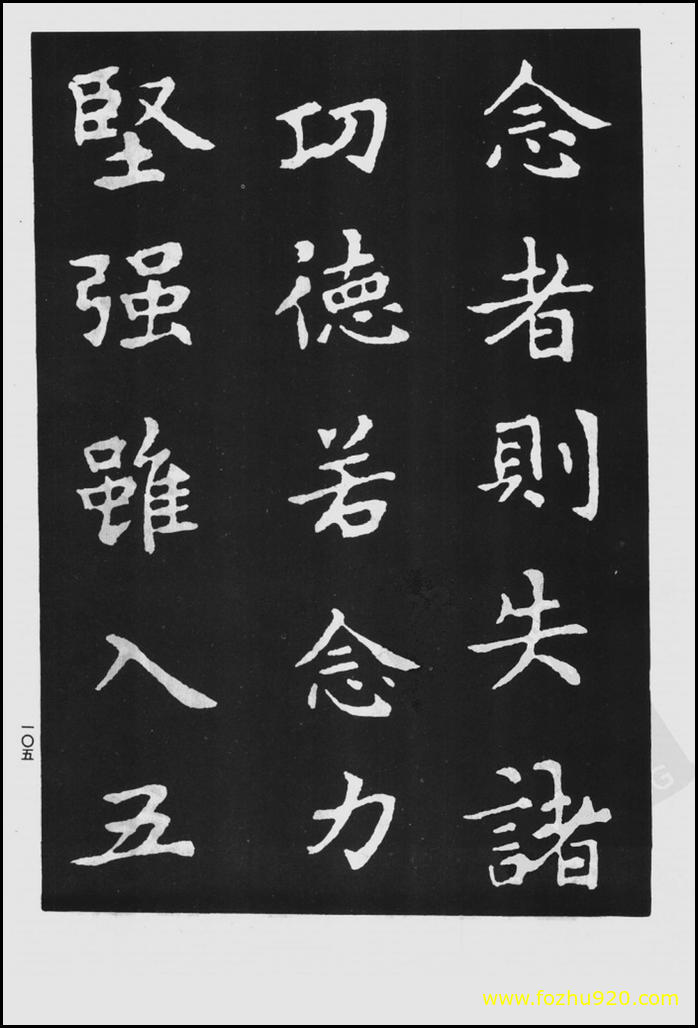 念者則失諸
功德若念力
堅强雖入五
一〇五
www.fozhu920.com